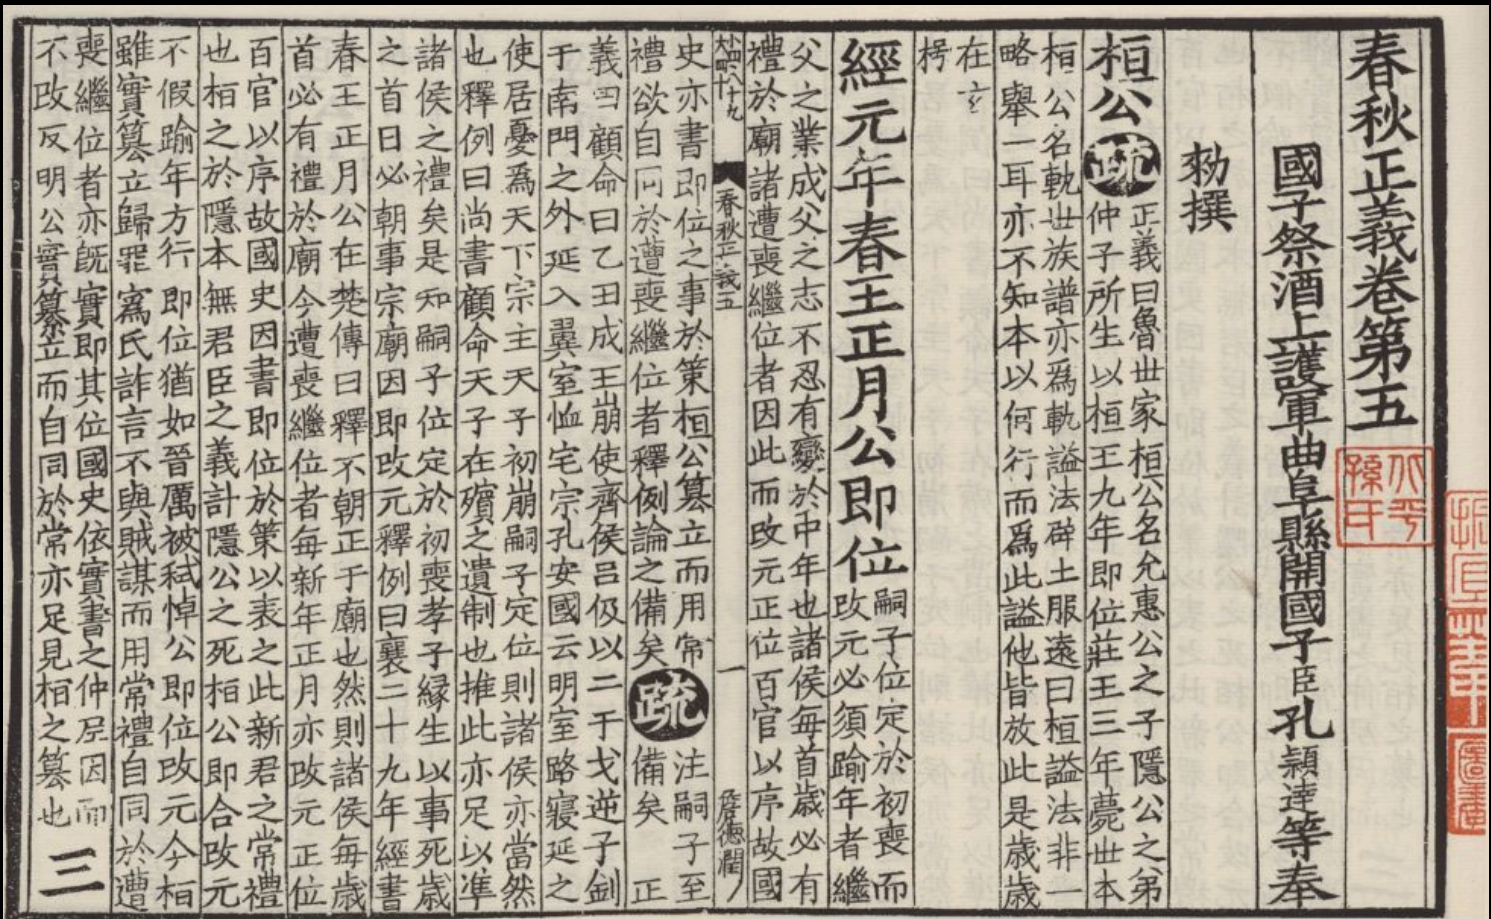 春秋正義卷第五
國子祭酒上護軍曲阜縣開國子臣孔穎達等奉
勑撰
桓公 疏
正義曰魯世家桓公名允惠公之子隱公之弟
仲子所生以桓王九年即位莊王三年薨世本
桓公名軌世族譜亦爲軌謚法辟土服遠曰桓謚法非一
略舉一耳亦不知本以何行而爲此謚他皆放此是歳歳
在玄
枵
經元年春王正月公即位
嗣子位定於初喪而
改元必須踰年者繼
父之業成父之志不忍有變於中年也諸侯每首歳必有
禮於廟諸遭喪繼位者因此而改元正位百官以序故國
春秋正義五
一
詹德潤
史亦書即位之事於策桓公篡立而用常
禮欲自同於遭喪繼位者釋例論之備矣
疏
注嗣子至
備矣 正
義曰顧命曰乙丑成王崩使齊侯吕伋以二干戈逆子釗
于南門之外延入翼室恤宅宗孔安國云明室路寢延之
使居憂爲天下宗主天子初崩嗣子定位則諸侯亦當然
也釋例曰尚書顧命天子在殯之遺制也推此亦足以準
諸侯之禮矣是知嗣子位定於初喪孝子縁生以事死歳
之首日必朝事宗廟因即改元釋例曰襄二十九年經書
春王正月公在楚傳曰釋不朝正于廟也然則諸侯每歳
首必有禮於廟今遭喪繼位者每新年正月亦改元正位
百官以序故國史因書即位於策以表之此新君之常禮
也桓之於隱本無君臣之義計隱公之死桓公即合改元
不假踰年方行即位猶如晉厲被弑悼公即位改元今桓
雖實篡立歸罪寪氏詐言不與賊謀而用常禮自同於遭
喪繼位者亦既實即其位國史依實書之仲尼因而
不改反明公實篡立而自同於常亦足見桓之篡也
三
北平
孫氏